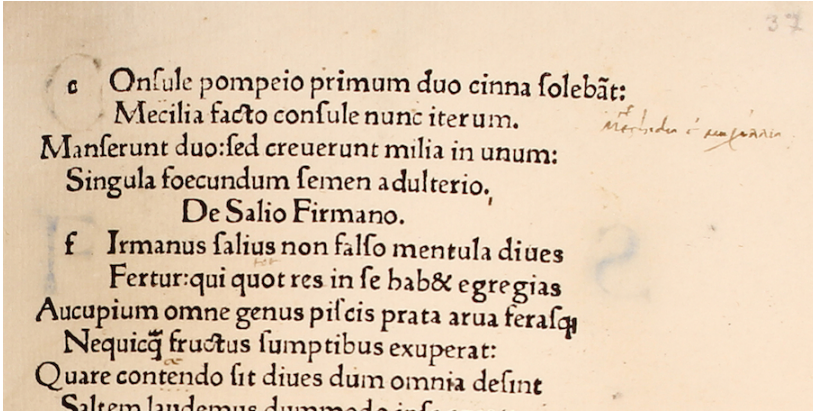 37
c Onſule pompeio primum duo cinna ſolebãt:
Mecilia facto conſule nunc iterum.
Manſerunt duo:ſed creuerunt milia in unum:
Singula foecundum ſemen adulterio.
De Salio Firmano.
f Irmanus ſalius non falſo mentula diues
Fertur:qui quot res in ſe hab& egregias
Aucupium omne genus piſcis prata arua feraſꝗ
Nequicꝗ̃ fructus ſumptibus exuperat:
Quare contendo ſit diues dum omnia deſint
Saltem laudemus dummodo